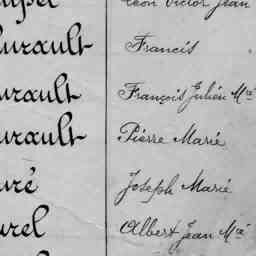 Léon Victor Jean
urault Francis
urault François Julien Mᵉ
urault Pierre Marie
uré Joseph Marie
urel Albert Jean Mᵉ